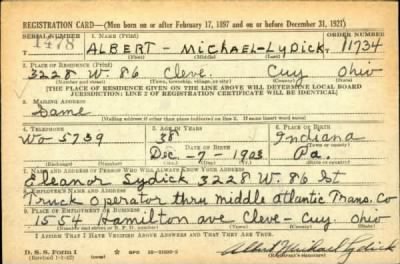 REGISTRATION CARD—(Men born on or after February 17, 1897 and on or before December 31, 1921)
SERIAL NUMBER 1. NAME (Print) ORDER NUMBER
1478 ALBERT - MICHAEL - LYDICK 11734
(First) (Middle) (Last)
2. PLACE OF RESIDENCE (Print)
3228 W. 86 Cleve. Cuy Ohio
(Number and street) (Town, township, village, or city) (County) (State)
[THE PLACE OF RESIDENCE GIVEN ON THE LINE ABOVE WILL DETERMINE LOCAL BOARD
JURISDICTION; LINE 2 OF REGISTRATION CERTIFICATE WILL BE IDENTICAL]
3. MAILING ADDRESS
Same
(Mailing address if other than place indicated on line 2. If same insert word same)
4. TELEPHONE 5. AGE IN YEARS 6. PLACE OF BIRTH
Wo 5739 38 Indiana
DATE OF BIRTH (Town or county)
Dec - 7 - 1903 Pa.
(Exchange) (Number) (Mo.) (Day) (Yr.) (State or country)
7. NAME AND ADDRESS OF PERSON WHO WILL ALWAYS KNOW YOUR ADDRESS
Eleanor Lydick 3228 W. 86 St
8. EMPLOYER'S NAME AND ADDRESS
Truck Operator thru middle Atlantic Trans. Co
9. PLACE OF EMPLOYMENT OR BUSINESS
1554 Hamilton ave Cleve - Cuy. Ohio
I AFFIRM THAT I HAVE VERIFIED ABOVE ANSWERS AND THAT THEY ARE TRUE.
D. S. S. Form 1
(Revised 1-1-42) GPO Albert Michael Lydick